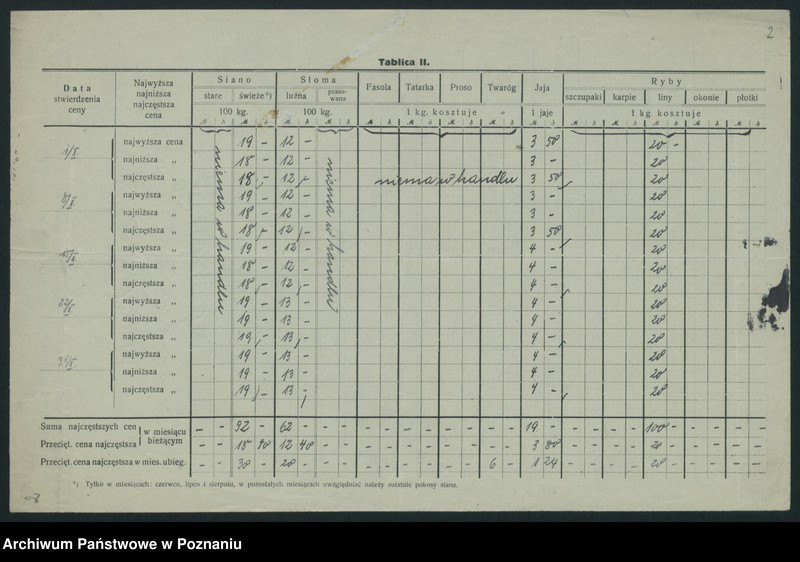 2
Tablica II.
Data stwierdzenia ceny | Najwyższa najniższa najczęstsza cena | Siano | Słoma | Fasola | Tatarka | Proso | Twaróg | Jaja | Ryby
stare | świeże*) | luźna | praso-wana | szczupaki | karpie | liny | okonie | płotki
100 kg. | 100 kg. | 1 kg. kosztuje | 1 jaje | 1 kg. kosztuje
najwyższa cena | 19 - | 12 - | 3 50 | 20 -
najniższa „ | 18 - | 12 - | 3 - | 20
najczęstsza „ | 18 - | 12 - | 3 50 | 20
niema w handlu
niema w handlu
niema w handlu
najwyższa „ | 19 - | 12 - | 3 - | 20
najniższa „ | 18 - | 12 - | 3 - | 20
najczęstsza „ | 18 - | 12 - | 3 50 | 20
najwyższa „ | 19 - | 12 - | 4 - | 20
najniższa „ | 18 - | 12 - | 4 - | 20
najczęstsza „ | 18 - | 12 - | 4 - | 20
22/X
najwyższa „ | 19 - | 13 - | 4 - | 20
najniższa „ | 19 - | 13 - | 4 - | 20
najczęstsza „ | 19 - | 13 - | 4 - | 20
31/X
najwyższa „ | 19 - | 13 - | 4 - | 20
najniższa „ | 19 - | 13 - | 4 - | 20
najczęstsza „ | 19 - | 13 - | 4 - | 20
Suma najczęstszych cen | w miesiącu bieżącym | - - | 92 - | 62 - | 19 - | 100 -
Przecięt. cena najczęstsza | - - | 18 40 | 12 40 | 3 80 | 20 -
Przecięt. cena najczęstsza w mies. ubieg. | - - | 30 - | 20 - | 6 - | 1 24 | 20 -
*) Tylko w miesiącach: czerwcu, lipcu i sierpniu, w pozostałych miesiącach uwzględniać należy ostatnie pokosy siana.
Archiwum Państwowe w Poznaniu